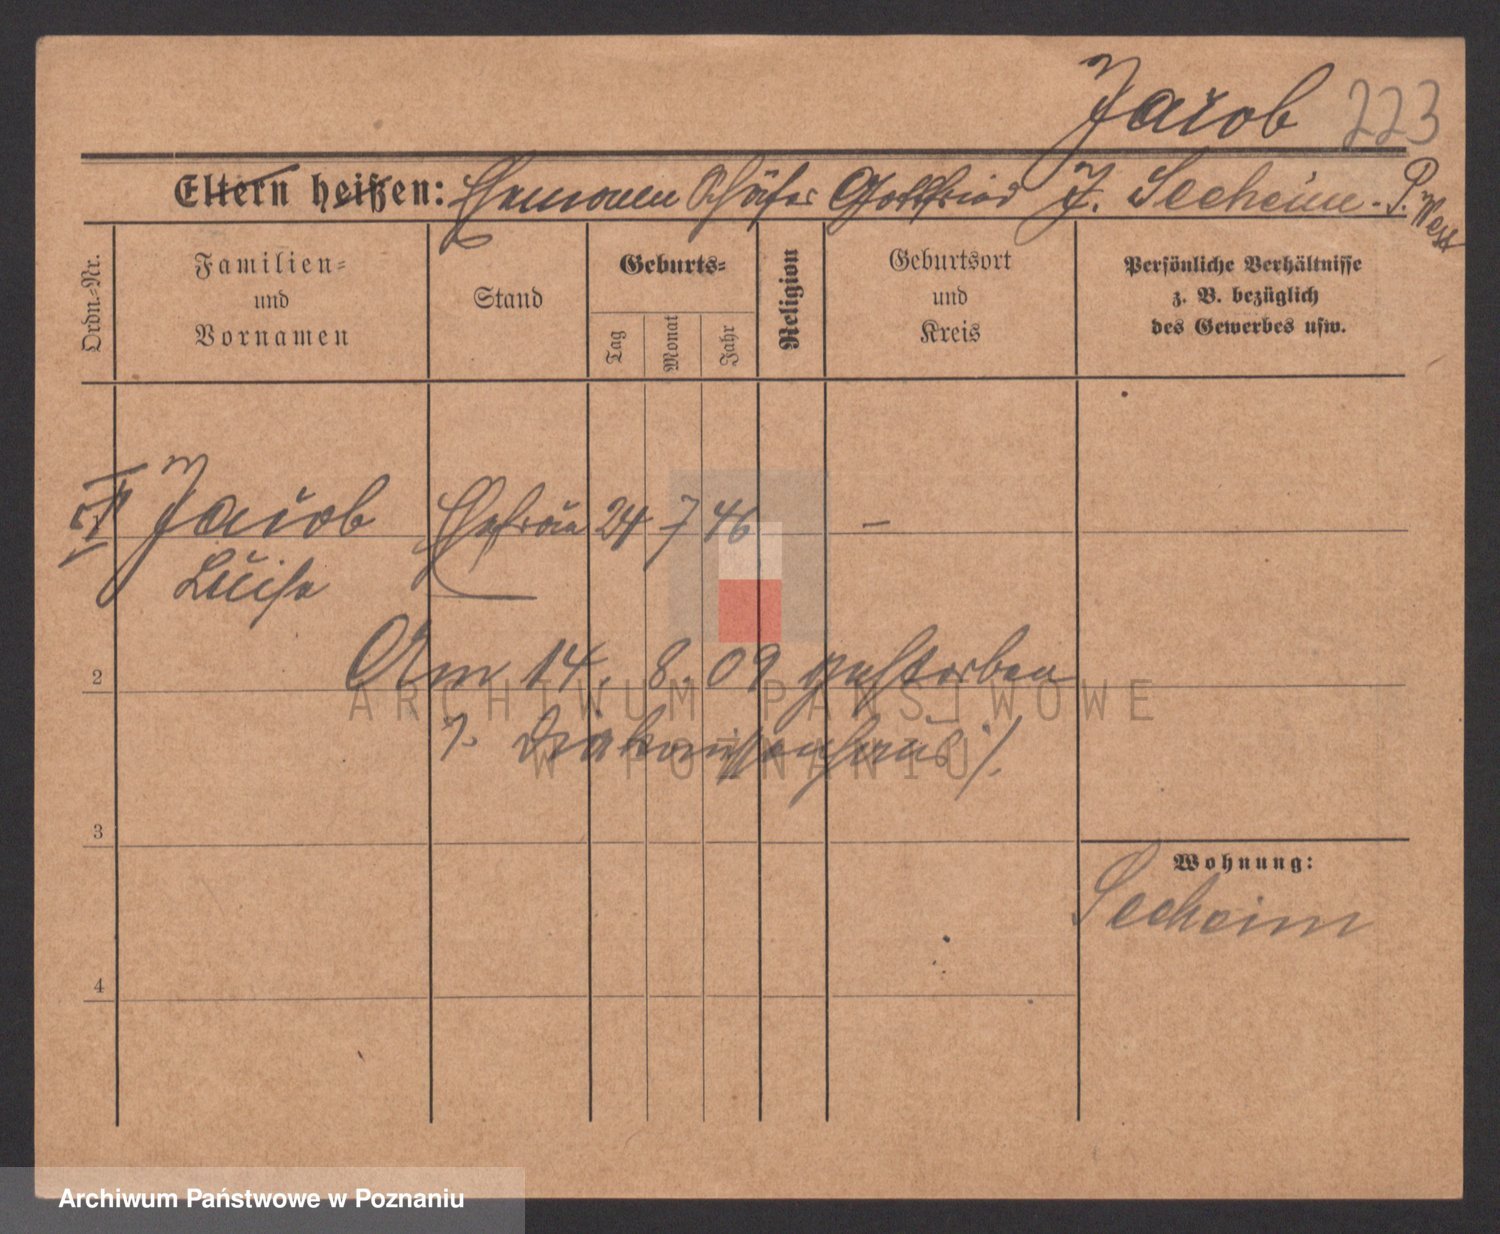 Jacob 223
Eltern heißen: Ehemann Schäfer Gottfried J. Seeheim. P. West
Ordn.-Nr.
Familien-
und
Vornamen
Stand
Geburts-
Tag
Monat
Jahr
Religion
Geburtsort
und
Kreis
Persönliche Verhältnisse
z. B. bezüglich
des Gewerbes usw.
Jacob Ehefrau 24 7 46 –
Luise
Am 14. 8. 09 gestorben
2
ARCHIWUM PAŃSTWOWE
Diakonissenhaus
W POZNANIU
3
Wohnung:
Seeheim
4
Archiwum Państwowe w Poznaniu